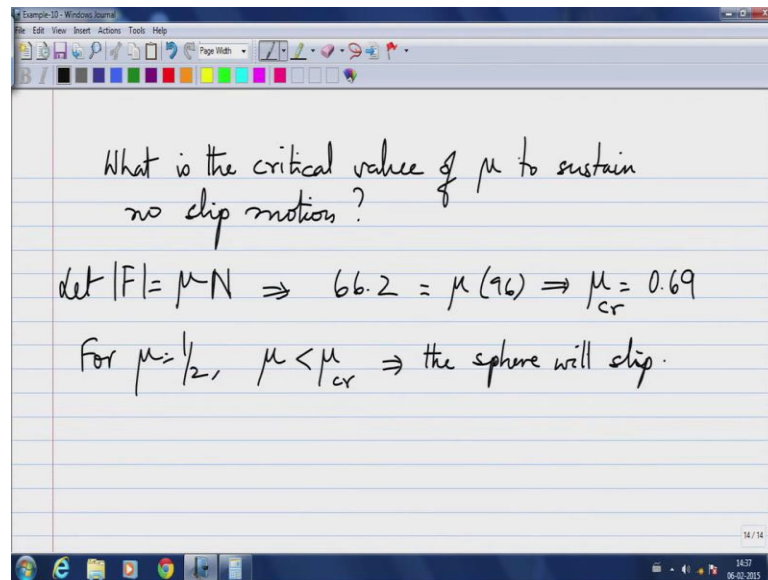 Example-10 - Windows Journal
File Edit View Insert Actions Tools Help
Page Width
What is the critical value of μ to sustain
no slip motion?
Let |F| = μN ⇒ 66.2 = μ(96) ⇒ μcr = 0.69
For μ = 1/2, μ < μcr ⇒ the sphere will slip.
14 / 14
14:37
06-02-2015